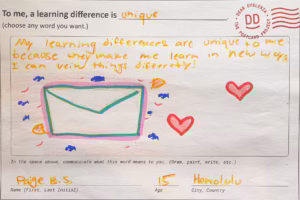 To me, a learning difference is unique
(choose any word you want.)
DEAR DYSLEXIA
DD
THE POSTCARD PROJECT
My learning differences are unique to me
because they make me learn in new ways
I can veiw things differetly!
In the space above, communicate what this word means to you. (Draw, paint, write, etc.)
Paige B.S. 15 Honolulu
Name (First, Last Initial) Age City, Country